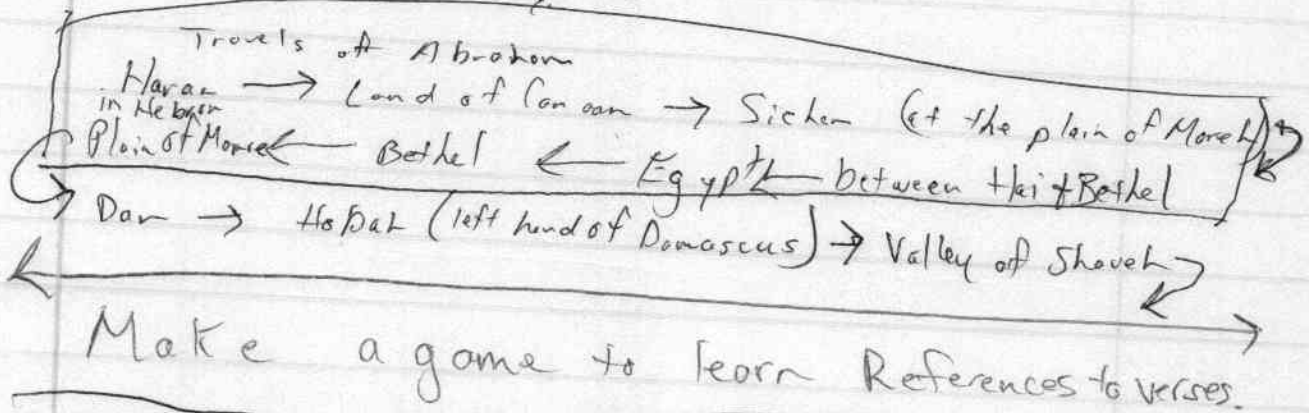 Travels of Abraham
Haran → Land of Canaan → Sichem (at the plain of Moreh)
in Hebron
Plain of Mamre ← Bethel ← Egypt ← between Hai & Bethel
Dan → Hobah (left hand of Damascus) → Valley of Shaveh
Make a game to learn References to verses.